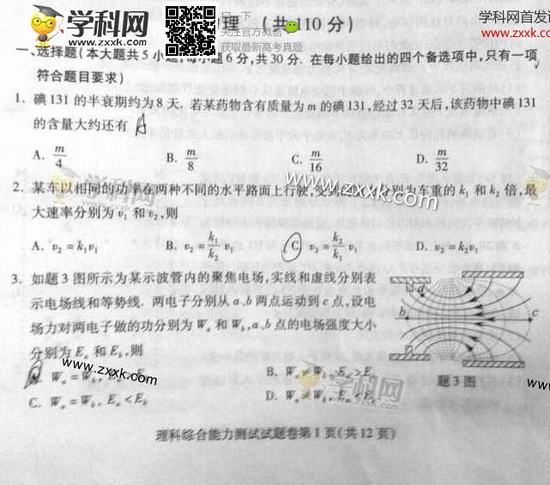 学科网
www.zxxk.com
学科网首发
www.zxxk.
关注官方微信
获取最新高考真题
物理 (共110分)
一、选择题(本大题共5小题,每小题6分,共30分. 在每小题给出的四个备选项中,只有一项
符合题目要求)
1. 碘131的半衰期约为8天. 若某药物含有质量为m的碘131,经过32天后,该药物中碘131
的含量大约还有 A
A. m/4 B. m/8 C. m/16 D. m/32
学科网
www.zxxk.com
2. 某车以相同的功率在两种不同的水平路面上行驶,受到 分别为车重的k₁和k₂倍,最
大速率分别为v₁和v₂,则
A. v₂=k₁v₁ B. v₂=k₁/k₂ v₁ C. v₂=k₂/k₁ v₁ D. v₂=k₂v₁
3. 如题3图所示为某示波管内的聚焦电场,实线和虚线分别表
示电场线和等势线. 两电子分别从a、b两点运动到c点,设电
场力对两电子做的功分别为Wₐ和W_b,a、b点的电场强度大小
分别为Eₐ和E_b,则
www.zxxk.com
A. Wₐ=W_b, B. Wₐ≠W_b,Eₐ>E_b
C. Wₐ=W_b,Eₐ<E_b D. Wₐ≠W_b,Eₐ<E_b
b
c
题3图
学科网
www.zxxk.com
学科网
www.zxxk.com
理科综合能力测试试题卷第1页(共12页)